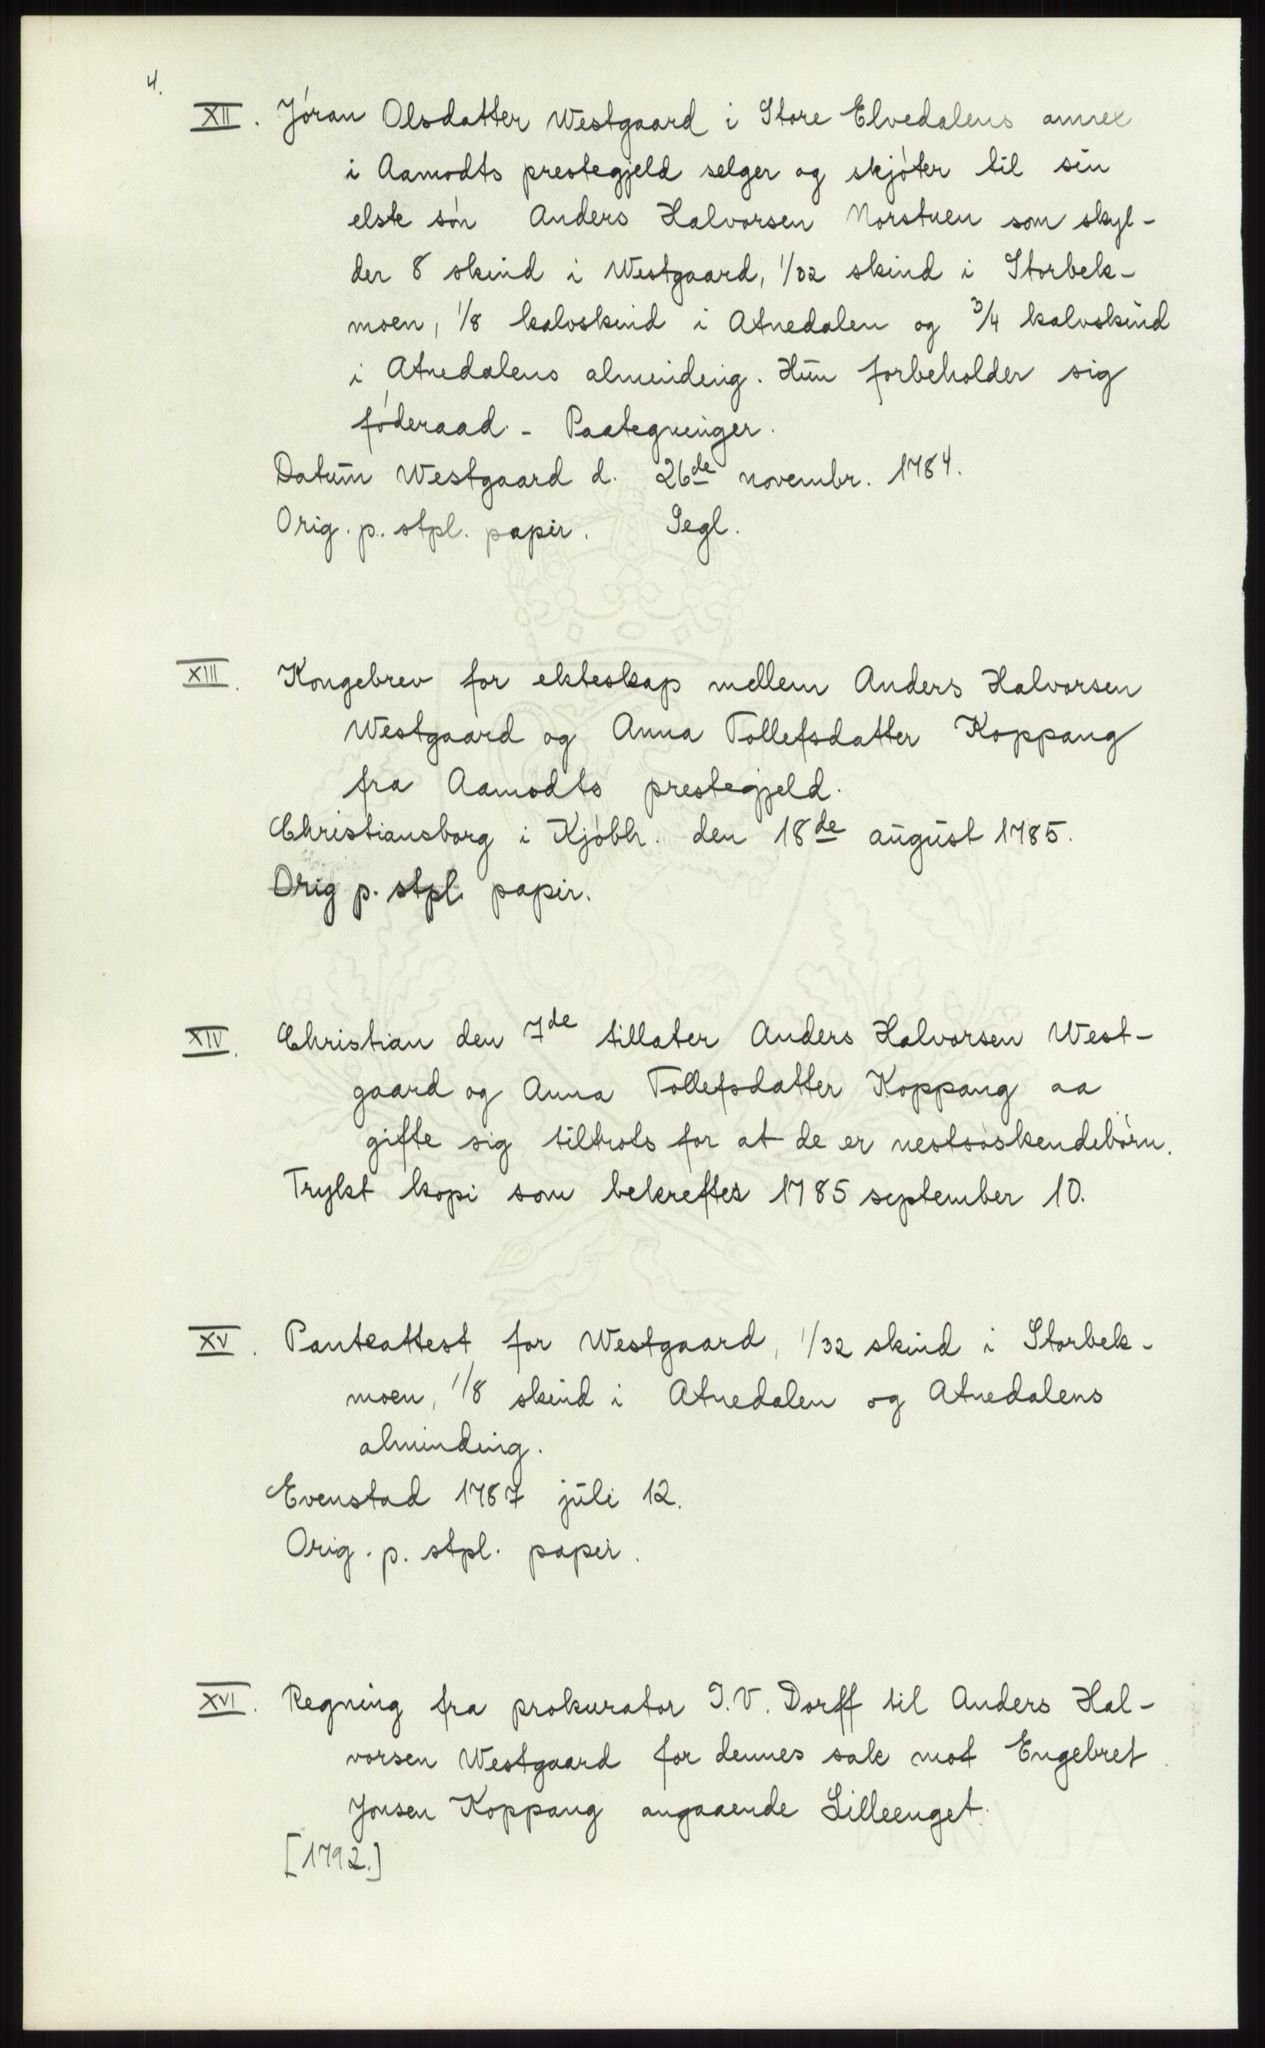 4.
XII. Jóran Olsdatter Westgaard i Store Elvedalens annex
i Aamodts prestegjeld selger og skjóter til sin
elste són Anders Halvorsen Norstuen som skyl-
der 8 skind i Westgaard, 1/32 skind i Storbek-
moen, 1/8 kalvskind i Atnedalen og 3/4 kalvskind
i Atnedalens almending. Hun forbeholder sig
fóderaad. - Paategninger.
Datum Westgaard d. 26de novembr. 1784.
Orig. p. stpl. papir. Segl.
XIII. Kongebrev for ekteskap mellem Anders Halvorsen
Westgaard og Anna Tollefsdatter Koppang
fra Aamodts prestegjeld.
Christiansborg i Kjóbh. den 18de august 1785.
Orig p. stpl. papir.
XIV. Christian den 7de tillater Anders Halvorsen West-
gaard og Anna Tollefsdatter Koppang aa
gifte sig tiltrots for at de er nestsóskendebórn.
Trykt kopi som bekreftes 1785 september 10.
XV. Panteattest for Westgaard, 1/32 skind i Storbek-
moen, 1/8 skind i Atnedalen og Atnedalens
alminding.
Evenstad 1787 juli 12.
Orig. p. stpl. papir.
XVI. Regning fra prokurator I. V. Dorff til Anders Hal-
vorsen Westgaard for dennes sak mot Engebret
Jonsen Koppang angaaende Lilleenget.
[1792.]